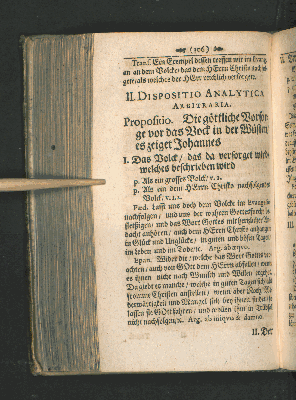 (106)
Trans. Ein Exempel dessen treffen wir im Evang.
an an dem Volcke, das dem HErrn Christo nachfol-
gete als welches der HErr reichlich versorgen.
II. DISPOSITIO ANALYTICA
ARBITRARIA.
Propositio. Die göttliche Vorsor-
ge vor das Vock in der Wüsten
es zeiget Johannes
I. Das Volck, das da versorget wird
welches beschrieben wird
p. Als ein grosses Volck, v. 2.
p. Als ein dem HErrn Christo nachfolgendes
Volck, v. 1. 2.
Pæd. Lasst uns doch dem Volcke im Evangelio
nachfolgen, und uns der wahren Gottesfurcht be-
fleissigen, und das Wort Gottes mit herzlicher An-
dacht anhören, auch dem HErrn Christo anhangen
in Glück und Unglücke, in guten und bösen Tagen,
im Leben und im Tode rc. Arg. ab exmpo.
Epan. Wider die, welche das Wort Gottes ver-
achten, auch von Gott dem HErrn abfallen, wenn
es ihnen nicht nach Wunsch und Willen ergehet.
Da giebt es manche, welche in guten Tagen sich als
fromme Christen anstellen, wenn aber Noth Wi-
derwärtigkeit und Mangel sich bey ihnen findet,
lassen sie Gott fahren, und wollen ihm in Trübsal
nicht nachfolgen rc. Arg. ab iniquo & damno.
II. Der